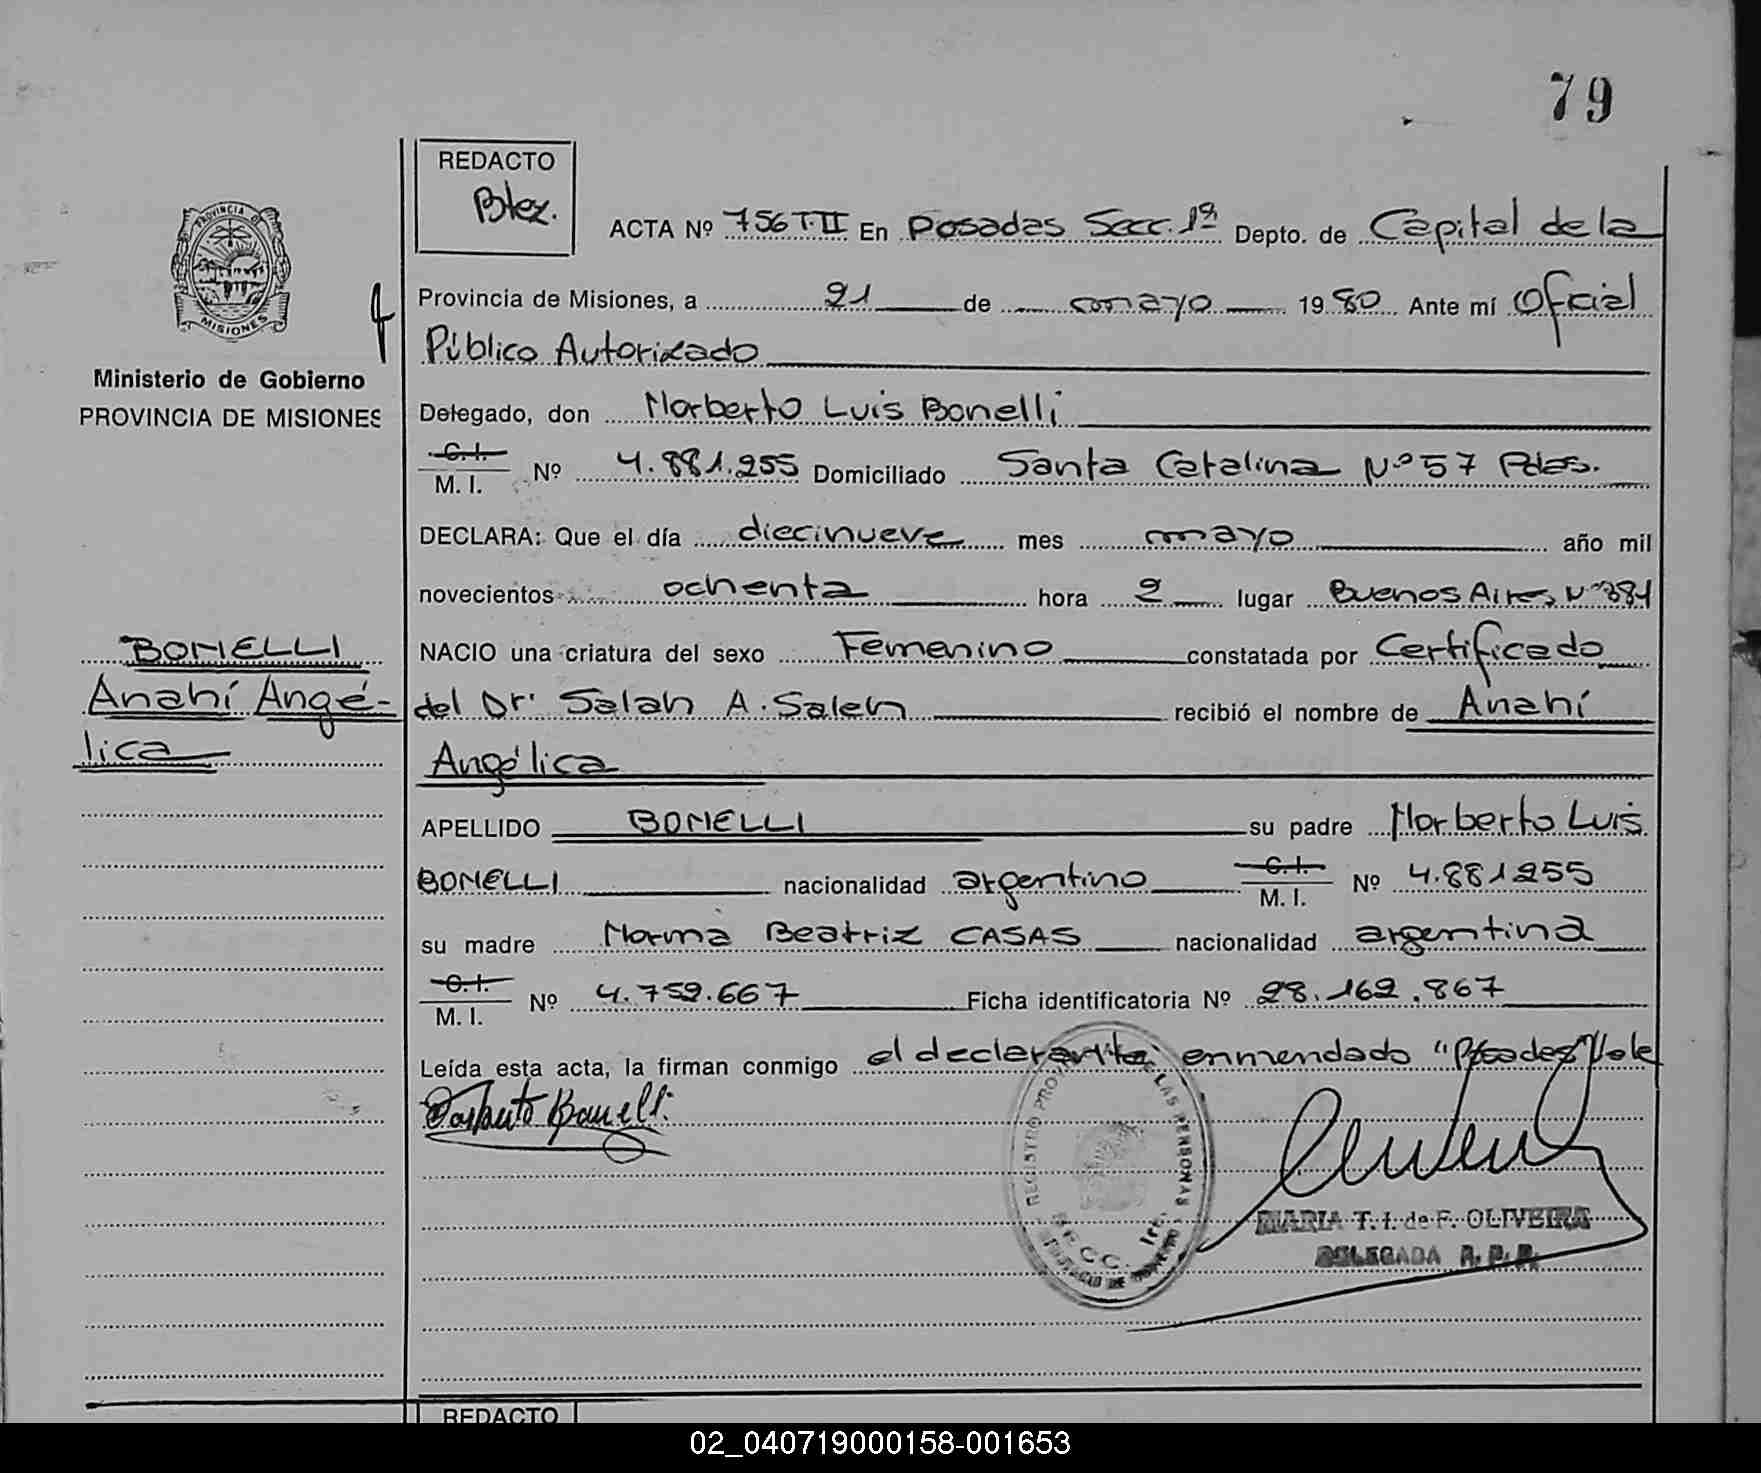 79
REDACTO
Btez.
ACTA Nº 756 T.II En Posadas Secc. 1ª Depto. de Capital de la
PROVINCIA DE
MISIONES
Provincia de Misiones, a 21 de mayo 1980 Ante mí Oficial
Público Autorizado
Ministerio de Gobierno
PROVINCIA DE MISIONES
Delegado, don Norberto Luis Bonelli
C.I.
M. I. Nº 4.881.255 Domiciliado Santa Catalina Nº 57 Pdas.
DECLARA: Que el día diecinueve mes mayo año mil
novecientos ochenta hora 2 lugar Buenos Aires Nº 381
BONELLI
Anahí Angé-
lica
NACIO una criatura del sexo Femenino constatada por Certificado
del Dr. Salah A. Saleh recibió el nombre de Anahí
Angélica
APELLIDO BONELLI su padre Norberto Luis
BONELLI nacionalidad argentino C.I. M. I. Nº 4.881255
su madre Norma Beatriz CASAS nacionalidad argentina
C.I.
M. I. Nº 4.759.667 Ficha identificatoria Nº 28.162.867
Leída esta acta, la firman conmigo el declarante enmendado "Posadas" Vale
Norberto Bonelli
REGISTRO PROV DE LAS PERSONAS
SECC. 1ra.
MARIA T. I. de F. OLIVEIRA
DELEGADA R. P. P.
REDACTO
02_040719000158-001653